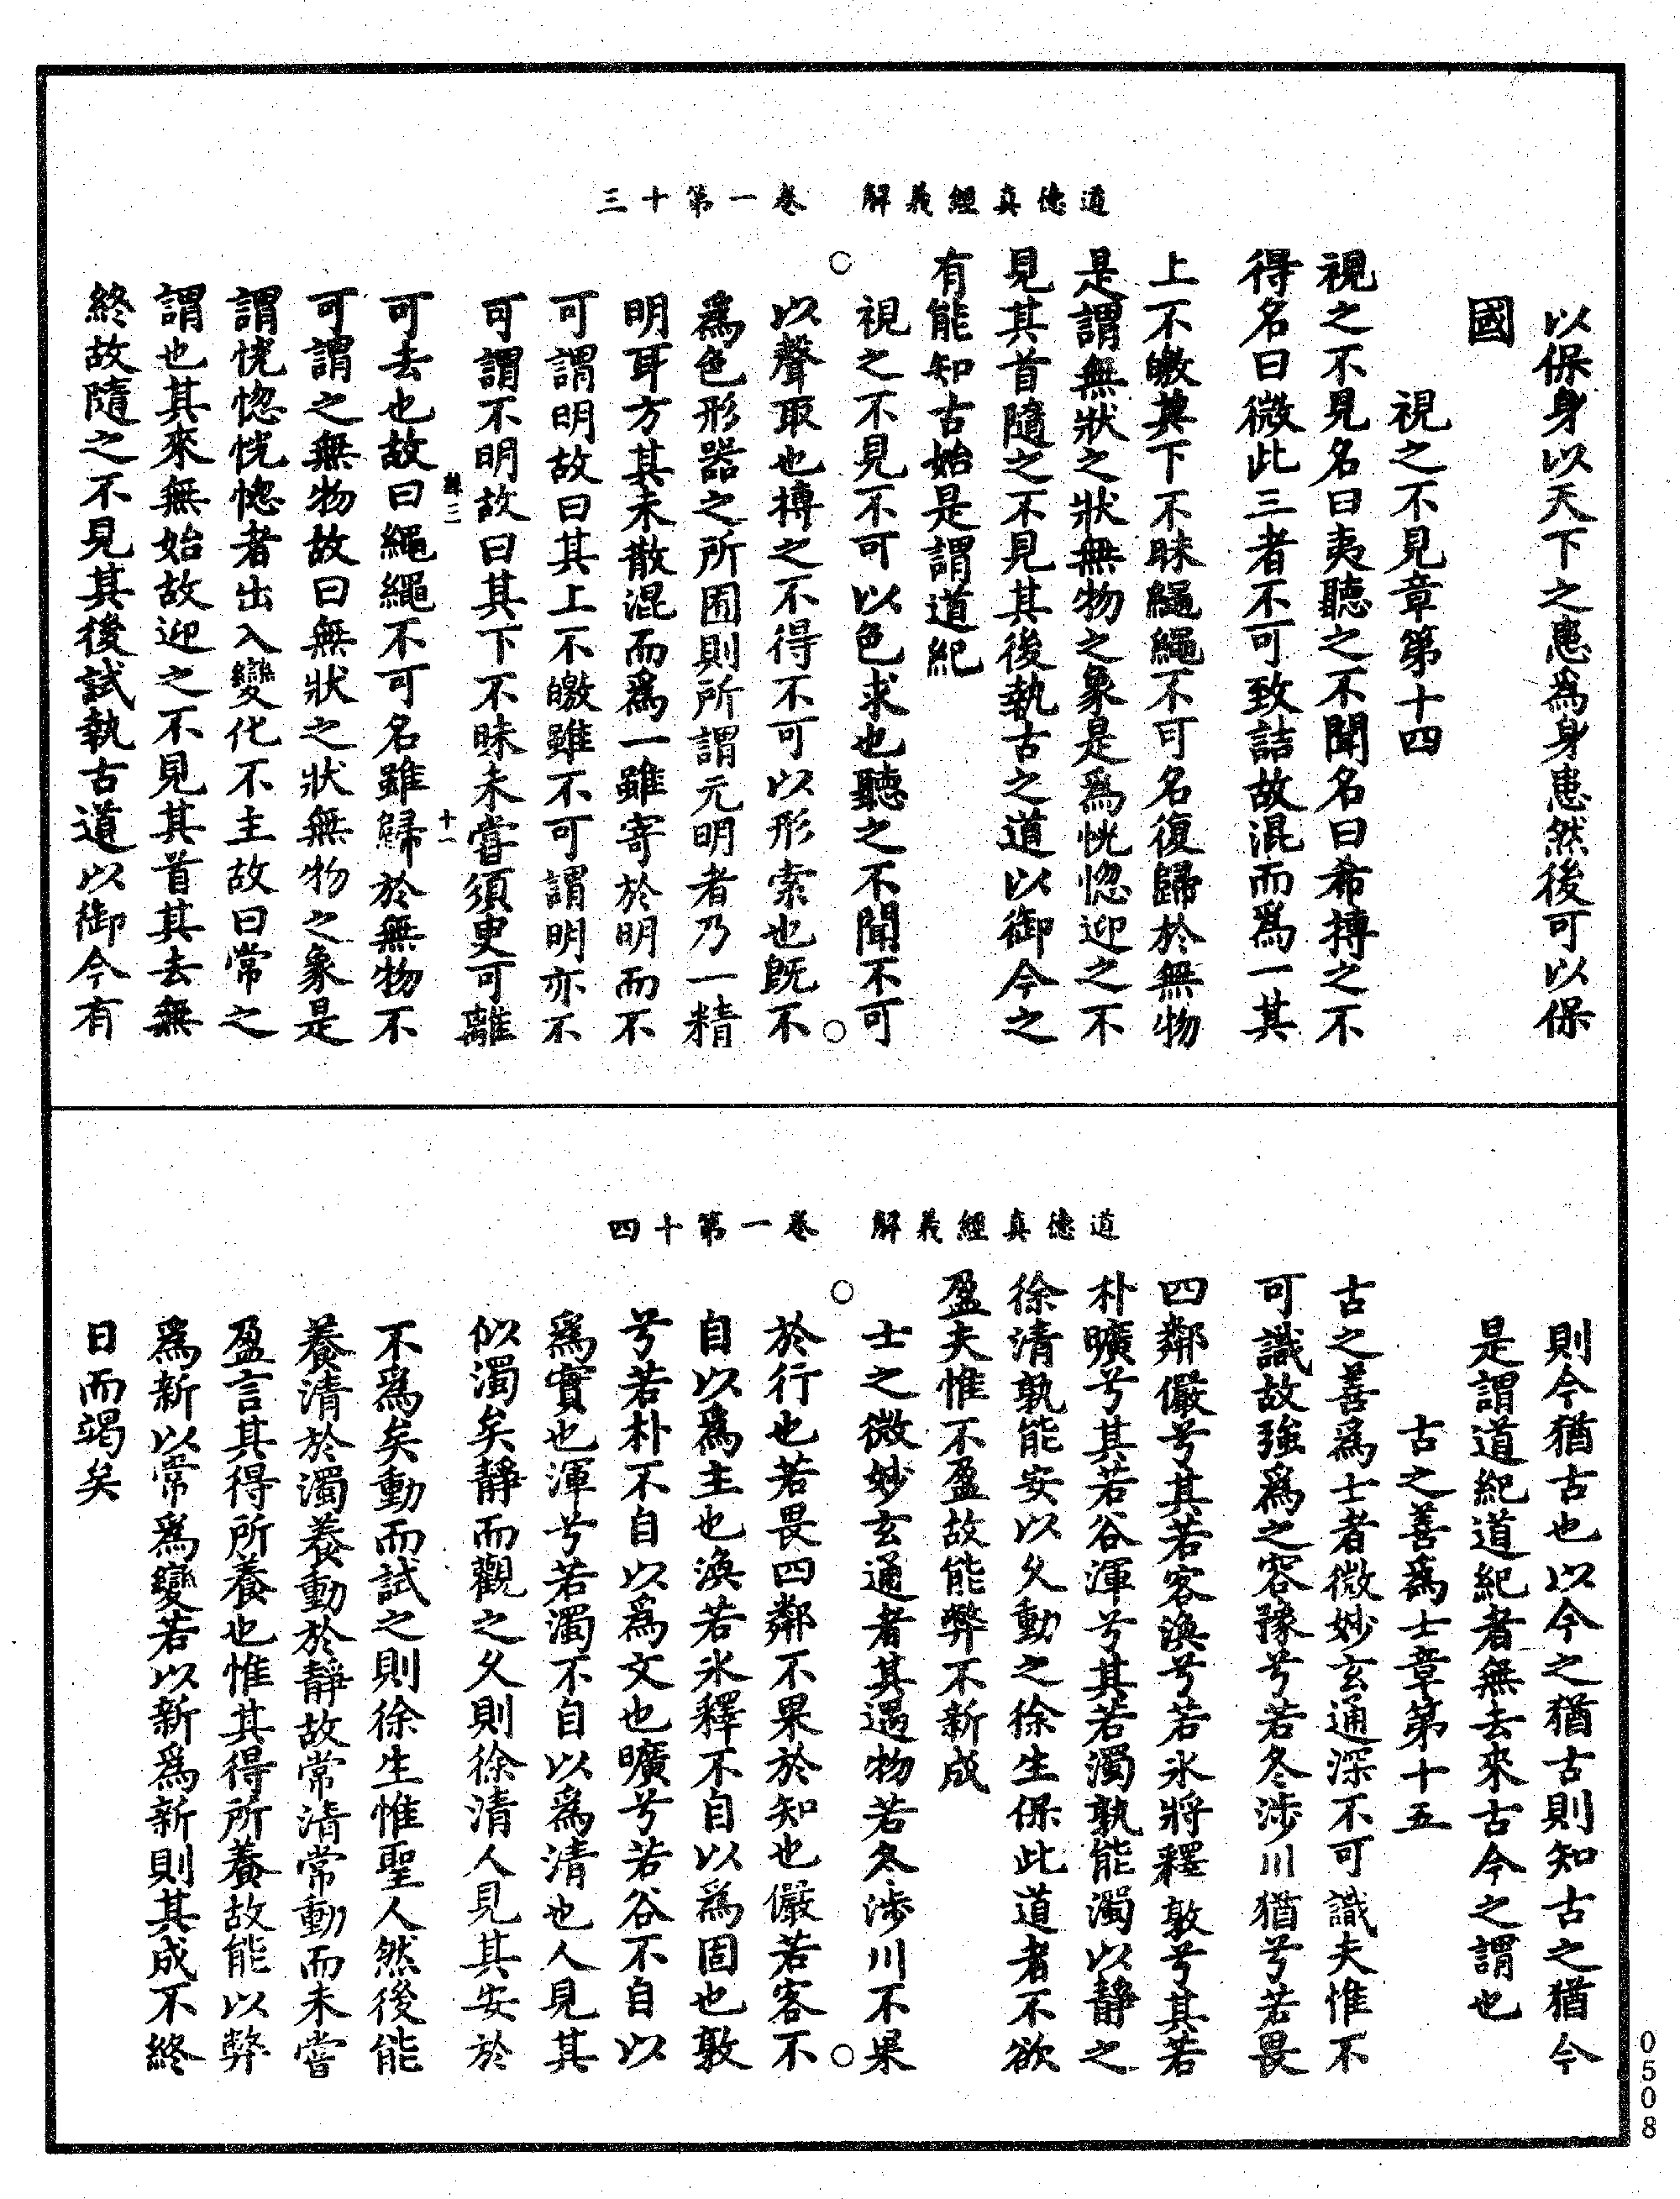 道德真經義解　卷一第十三
以保身以天下之患為身患然後可以保
國
視之不見章第十四
視之不見名曰夷聽之不聞名曰希搏之不
得名曰微此三者不可致詰故混而爲一其
上不皦其下不昧繩繩不可名復歸於無物
是謂無狀之狀無物之象是爲恍惚迎之不
見其首隨之不見其後執古之道以御今之
有能知古始是謂道紀
視之不見不可以色求也聽之不聞不可
以聲取也搏之不得不可以形索也旣不
爲色形器之所囿則所謂元明者乃一精
明耳方其未散混而爲一雖寄於明而不
可謂明故曰其上不皦雖不可謂明亦不
可謂不明故曰其下不昧未嘗須臾可離
十一
可去也故曰繩繩不可名雖歸於無物不
可謂之無物故曰無狀之狀無物之象是
謂恍惚恍惚者出入變化不主故曰常之
謂也其來無始故迎之不見其首其去無
終故隨之不見其後試執古道以御今有
道德真經義解　卷一第十四
則今猶古也以今之猶古則知古之猶今
是謂道紀道紀者無去來古今之謂也
古之善爲士章第十五
古之善爲士者微妙玄通深不可識夫惟不
可識故強爲之容豫兮若冬涉川猶兮若畏
四鄰儼兮其若客渙兮若氷將釋敦兮其若
朴曠兮其若谷渾兮其若濁孰能濁以靜之
徐清孰能安以久動之徐生保此道者不欲
盈夫惟不盈故能弊不新成
士之微妙玄通者其遇物若冬涉川不果
於行也若畏四鄰不果於知也儼若客不
自以爲主也渙若氷釋不自以爲固也敦
兮若朴不自以爲文也曠兮若谷不自以
爲實也渾兮若濁不自以爲清也人見其
似濁矣靜而觀之久則徐清人見其安於
不爲矣動而試之則徐生惟聖人然後能
養清於濁養動於靜故常清常動而未嘗
盈言其得所養也惟其得所養故能以弊
爲新以常爲變若以新爲新則其成不終
日而竭矣
0508